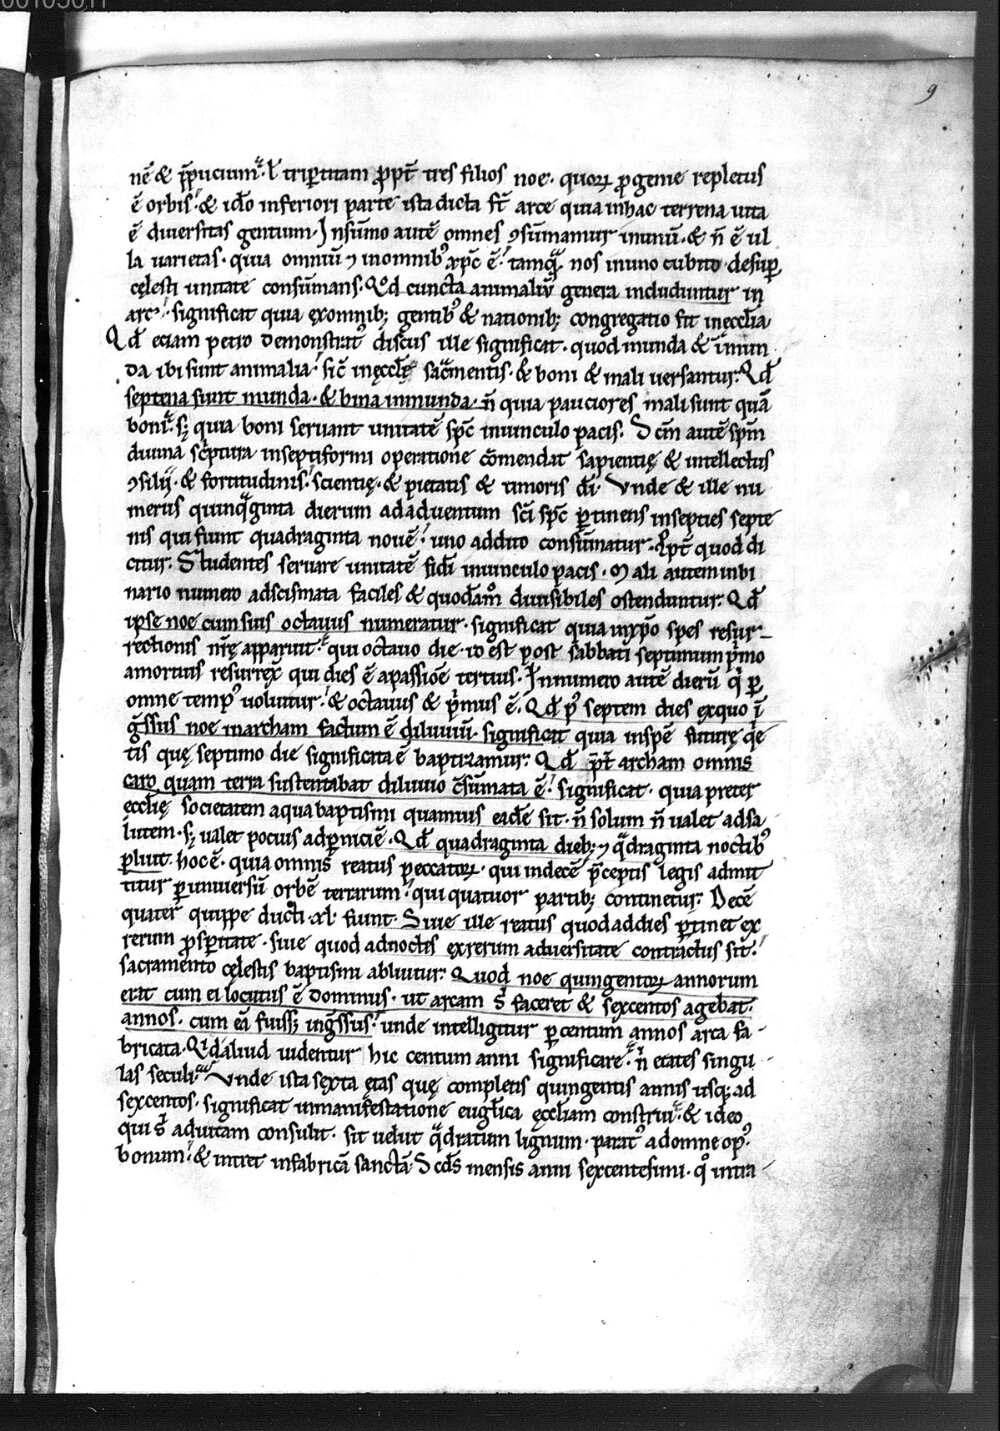 9
nē & p̄pucium. ł triꝑtitam ꝓpt̄ tres filios noe. quoꝝ ꝓgenie repletus
ē orbis. & id̄o inferiori parte ista dicta st̄ arce quia in hac terrena uita
ē diuersitas gentium. In sūmo autē omnes ꝯsūmamur in unū. & n̄ ē ul
la uarietas. quia omniū ⁊ in omnibꝰ xp̄c ē. tamqꝫ nos in uno cubito desuꝑ
cęlesti unitate consūmans. Qd̄ cuncta animaliū genera includuntur in
arca. significat quia ex omnibꝫ gentibꝰ & nationibꝫ congregatio fit in ęccl̄ia
Qd̄ eciam petro demonstratꝰ discus ille significat. quod munda & inmun
da ibi sunt animalia. sic̄ in ęccl̄ię sac̄mentis. & boni & mali uersantur. Qd̄
septena sunt munda. & bina inmunda. n̄ quia pauciores mali sunt quā
boni. sꝫ quia boni seruant unitatē sp̄c in uinculo pacis. Sc̄m autē sp̄m
diuina sc̄ptura in septiformi operatione cōmendat sapientię & intellectus
ꝯsilii. & fortitudinis. scientię. & pietatis & timoris di. Vnde & ille nu
merus quinq̄ginta dierum ad aduentum sc̄i sp̄c ꝑtinens in septies septe
nis qui fiunt quadraginta nouē. uno addito consūmatur. Ꝓpt̄ quod di
citur. Studentes seruare unitatē fidi in uinculo pacis. Mali autem in bi
nario numero ad scismata faciles & quodam̊ diuisibiles ostenduntur. Qd̄
ipse noe cum suis octauus numeratur. significat quia in xp̄o spes resur
rectionis nr̄ę apparuit. qui octauo die. id est post sabbati septimum p̄mo
a mortuis resurrex̄ qui dies ē a passiōe tertius. In numero autē dierū q̄ ꝑ
omne tempꝰ uoluitur. & octauus & p̄mus ē. Qd̄ pꝰ septem dies ex quo ī
gssus noe in archam factum ē diluuiū. significat quia in spē futurę q̄e
tis quę septimo die significata ē baptizamur. Qd̄ p̄t archam omnis
caro quam terra sustentabat diluuio c̄sūmata ē. significat. quia preter
eccl̄ię societatem aqua baptismi quamuis eadē sit. n̄ solum n̄ ualet ad sa
lutem. sꝫ ualet pocius ad ꝑniciē. Qd̄ quadraginta diebꝫ ⁊ q̄draginta noctibꝰ
pluit. hoc ē. quia omnis reatus peccatoꝝ. qui in decē p̄ceptis legis admit
titur ꝑ uniuersū orbē terrarum. qui quatuor partibꝫ continetur. Decē
quater quippe ducti xl fiunt. Siue ille reatus quod ad dies ꝑtinet ex
rerum ꝓsꝑitate. siue quod ad noctes ex rerum aduersitate contractus sit.
sacramento cęlestis baptismi abluitur. Quod noe quingentoꝝ annorum
erat cum ei locutus ē dominus. ut arcam s̄ faceret & sexcentos agebat
annos. cum eā fuissꝫ ingssus. unde intelligitur ꝑ centum annos arca fa
bricata. Qid aliud uidentur hic centum anni significare. n̄ etates singu
las seculi. Vnde ista sexta ętas quę completis quingentis annis usqꝫ ad
sexcentos. significat in manifestatione euglica eccliam construi. & ideo
qui s̄ ad uitam consulit. sit uelut q̄dratum lignum. paratꝰ ad omne opꝰ
bonum. & intret in fabricā sanctā. Scd̄s mensis anni sexcentesimi. q̊ intra